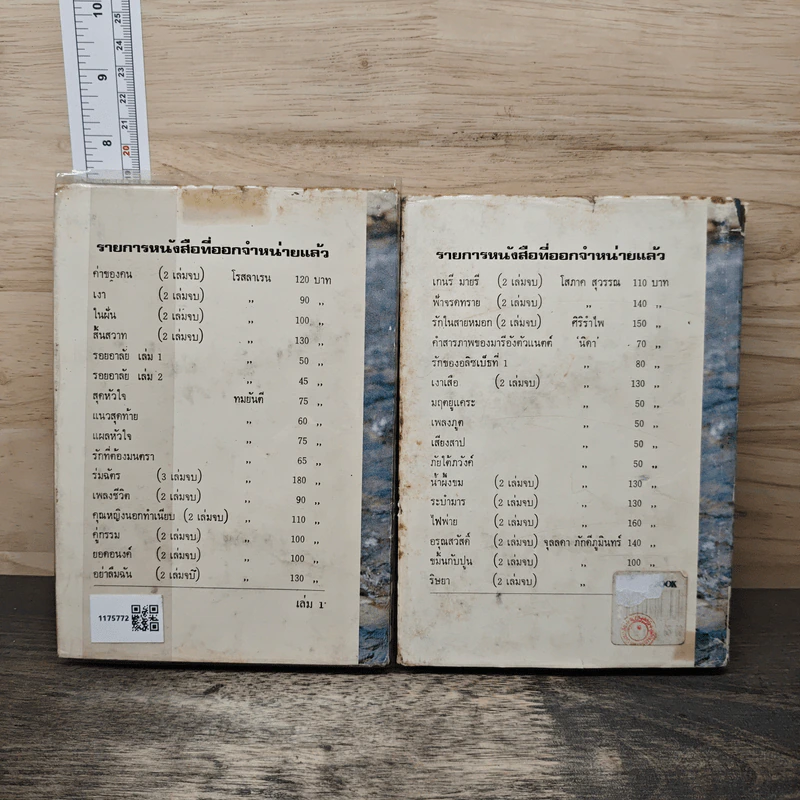 รายการหนังสือที่ออกจำหน่ายแล้ว
ค่าของคน (2 เล่มจบ) โรสลาเรน 120 บาท
เงา (2 เล่มจบ) ,, 90 ,,
ในฝัน (2 เล่มจบ) ,, 100 ,,
สิ้นสวาท (2 เล่มจบ) ,, 130 ,,
รอยอาลัย เล่ม 1 ,, 50 ,,
รอยอาลัย เล่ม 2 ,, 45 ,,
สุดหัวใจ ทมยันตี 75 ,,
แนวสุดท้าย ,, 60 ,,
แผลหัวใจ ,, 75 ,,
รักที่ต้องมนตรา ,, 65 ,,
ร่มฉัตร (3 เล่มจบ) ,, 180 ,,
เพลงชีวิต (2 เล่มจบ) ,, 90 ,,
คุณหญิงนอกทำเนียบ (2 เล่มจบ) ,, 110 ,,
คู่กรรม (2 เล่มจบ) ,, 100 ,,
ยอดอนงค์ (2 เล่มจบ) ,, 100 ,,
อย่าลืมฉัน (2 เล่มจบ) ,, 130 ,,
เล่ม 1
1175772
รายการหนังสือที่ออกจำหน่ายแล้ว
เกนรี มายรี (2 เล่มจบ) โสภาค สุวรรณ 110 บาท
ฟ้าจรดทราย (2 เล่มจบ) ,, 140 ,,
รักในสายหมอก (2 เล่มจบ) ศิริรำไพ 150 ,,
คำสารภาพของมารีอังตัวแนตต์ 'นิดา' 70 ,,
รักของอลิซเบ็ธที่ 1 ,, 80 ,,
เงาเสือ (2 เล่มจบ) ,, 130 ,,
มฤตยูแคระ ,, 50 ,,
เพลงภูต ,, 50 ,,
เสียงสาป ,, 50 ,,
ภัยใต้ภวังค์ ,, 50 ,,
น้ำผึ้งขม (2 เล่มจบ) ,, 130 ,,
ระบำมาร (2 เล่มจบ) ,, 130 ,,
ไฟพ่าย (2 เล่มจบ) ,, 160 ,,
อรุณสวัสดิ์ (2 เล่มจบ) จุลลดา ภักดีภูมินทร์ 140 ,,
ขมิ้นกับปูน (2 เล่มจบ) ,, 100 ,,
ริษยา (2 เล่มจบ) ,,
10
9
8
25
24
23
22
21
20
19